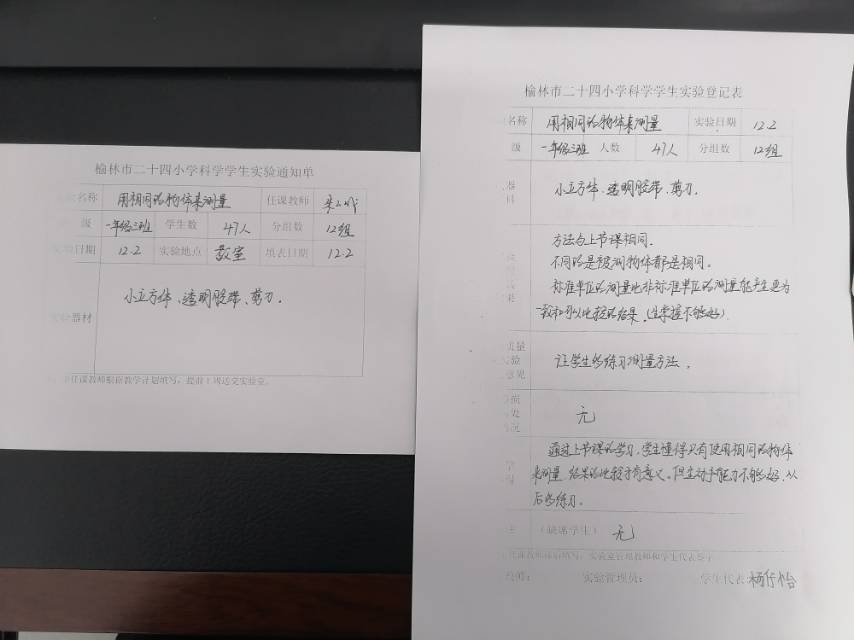 榆林市二十四小学科学学生实验通知单
名称 用相同的物体来测量 任课教师
级 一年级三班 学生数 47人 分组数 12组
实验日期 12.2 实验地点 教室 填表日期 12.2
实验器材 小立方体、透明胶带、剪刀.
任课教师根据教学计划填写，提前1周送交实验室。
榆林市二十四小学科学学生实验登记表
名称 用相同的物体来测量 实验日期 12.2
级 一年级三班 人数 47人 分组数 12组
小立方体、透明胶带、剪刀.
方法与上节课相同.
不同的是被测物体都是相同.
标准单位的测量比非标准单位的测量能产生更为
可以比较的结果.(生掌握不够好)
让学生多练习测量方法.
无
通过上节课的学习,学生懂得只有使用相同的物体
来测量,结果的比较才有意义.但生动手能力不够好,以
后多练习.
(缺席学生) 无
任课教师课后填写，实验室管理教师和学生代表签字
实验管理员: 学生代表: